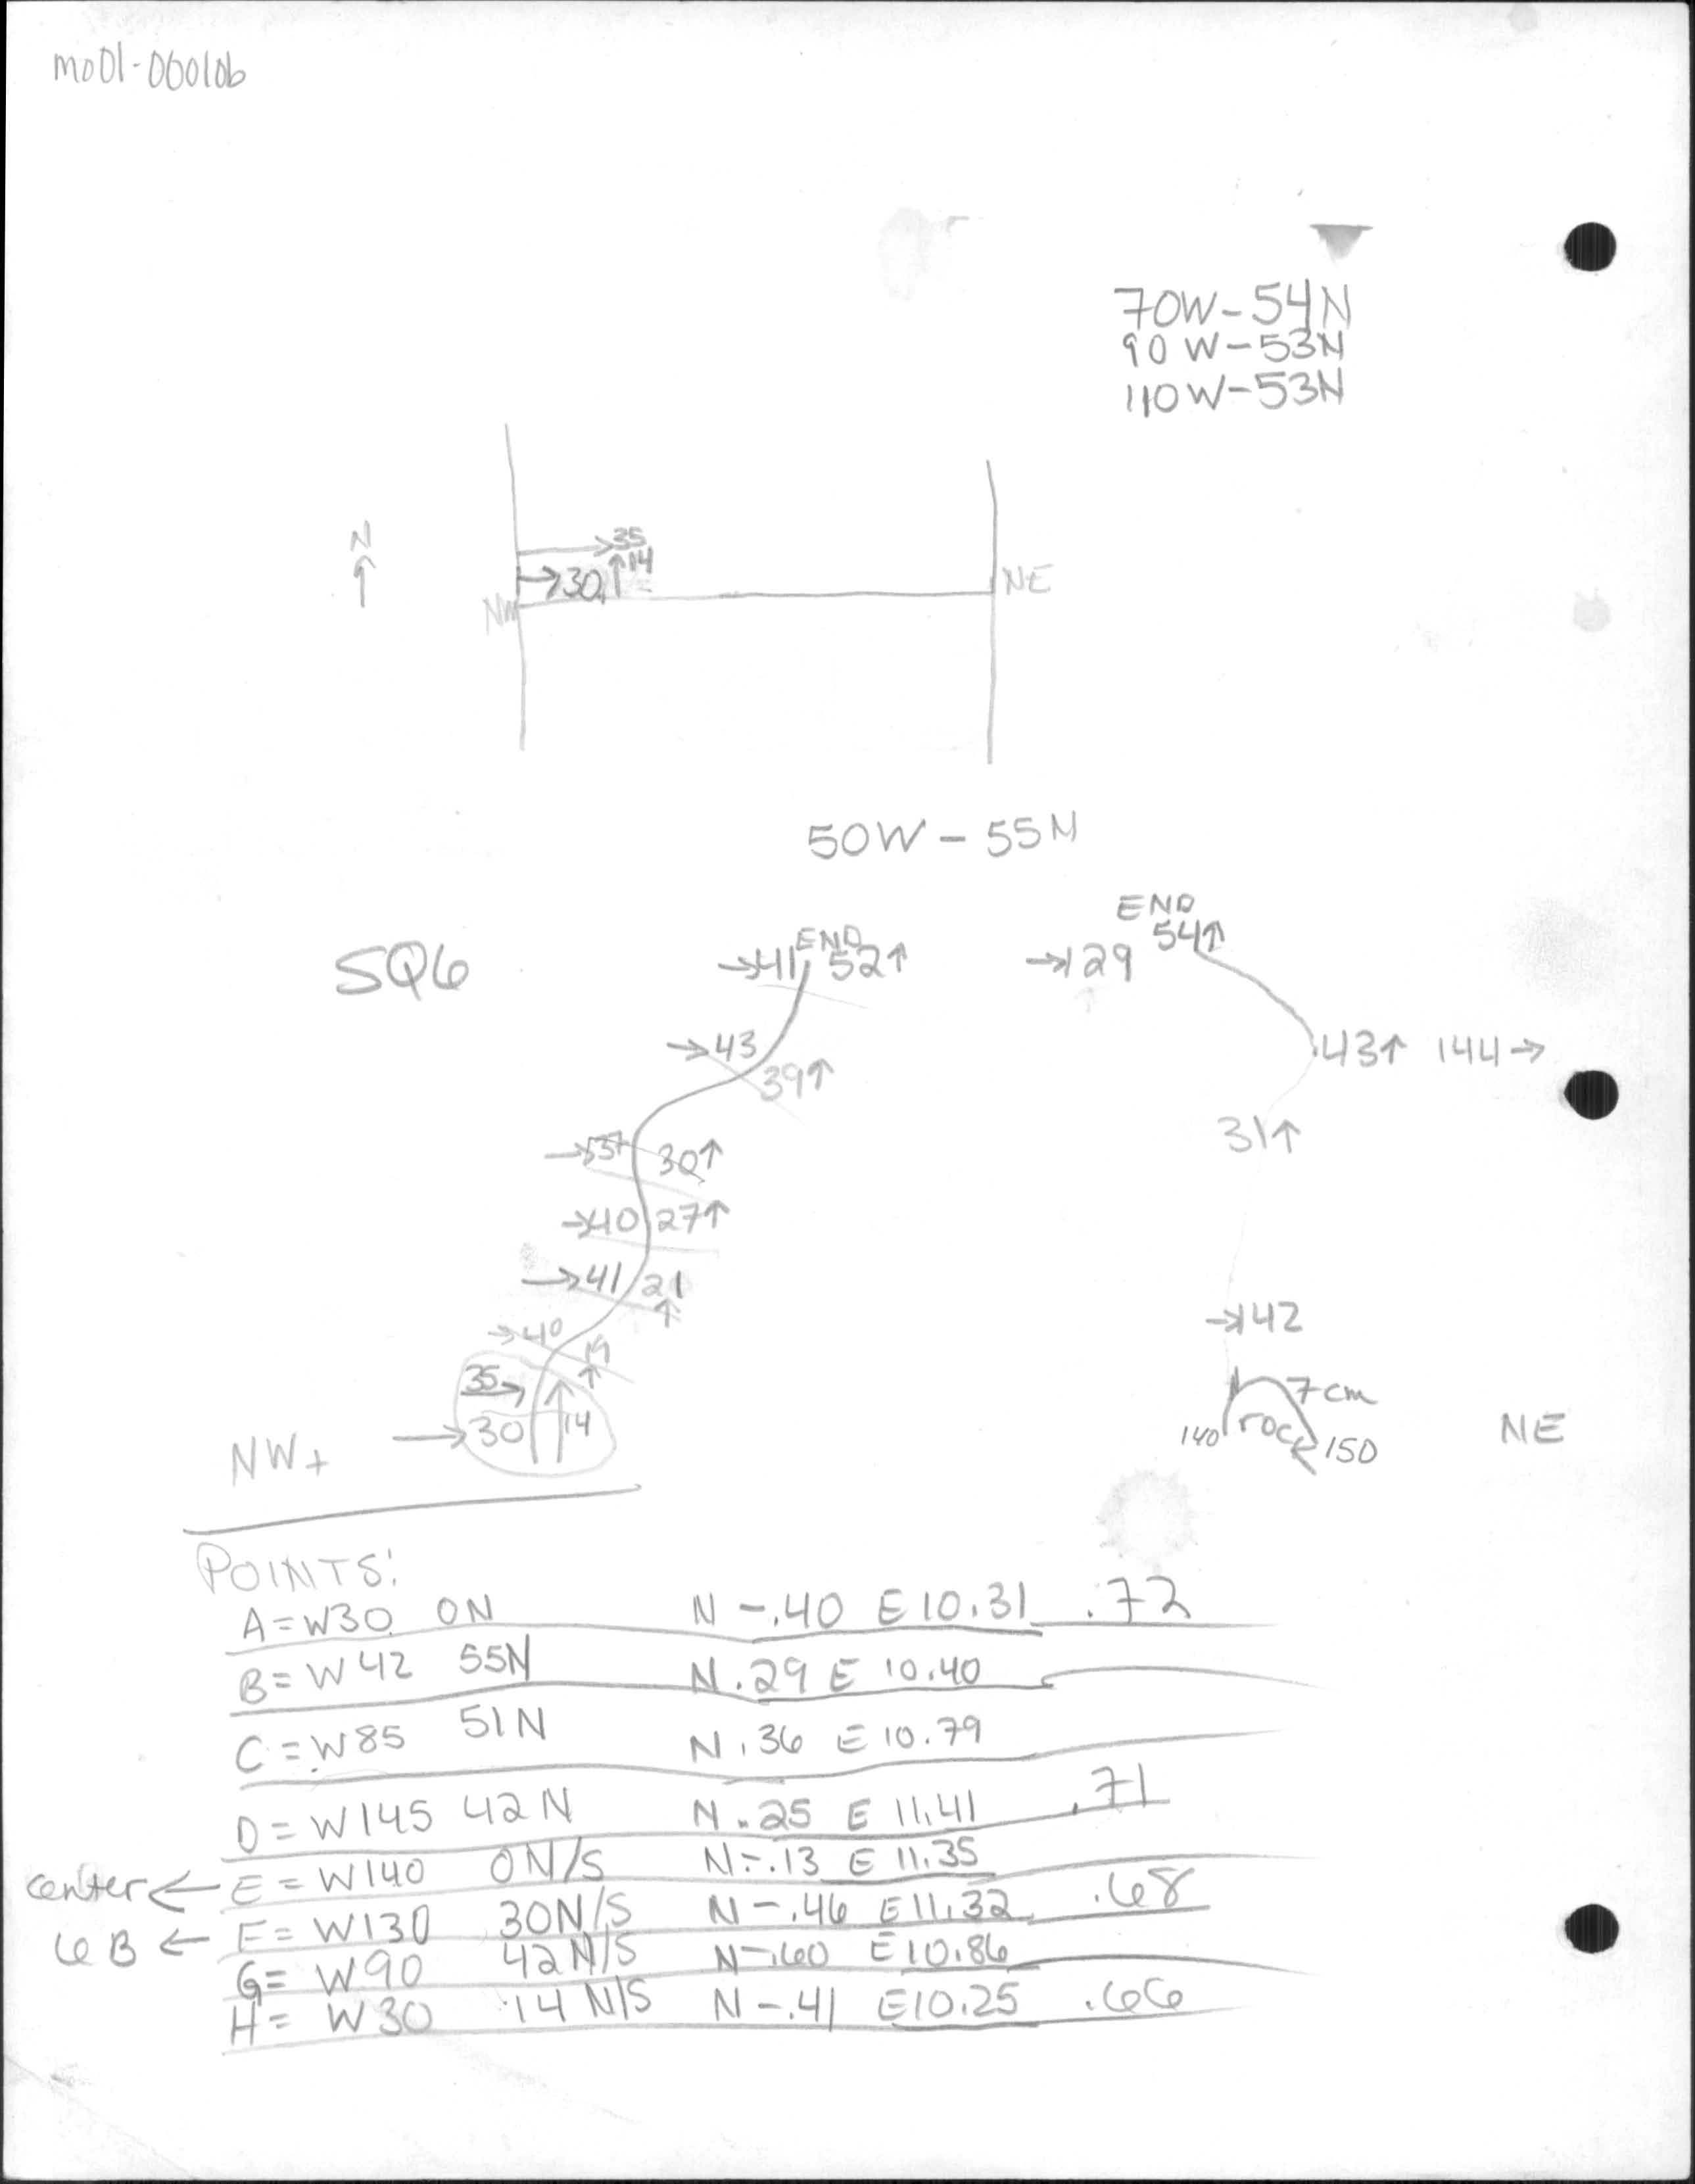 mo01-060106
70W-54N
90W-53N
110W-53N
N
→35
→30 ↑14
NW
NE
50W - 55N
SQ6
END
→41 52↑
END
54↑
→129
→43
39↑
43↑ 144→
→37 30↑
31↑
→40 27↑
→41 21↑
→142
→40 19↑
35→
→30 14
7cm
140 rock 150
NE
NW+
POINTS:
A=W30 0N N -.40 E 10.31 .72
B=W42 55N N.29 E 10.40
C=W85 51N N.36 E 10.79
D=W145 42N N.25 E 11.41 .71
center ← E=W140 0N/S N-.13 E 11.35
6B ← F=W130 30N/S N-.46 E11.32 .68
G=W90 42N/S N-.60 E10.86
H=W30 14N/S N-.41 E10.25 .66